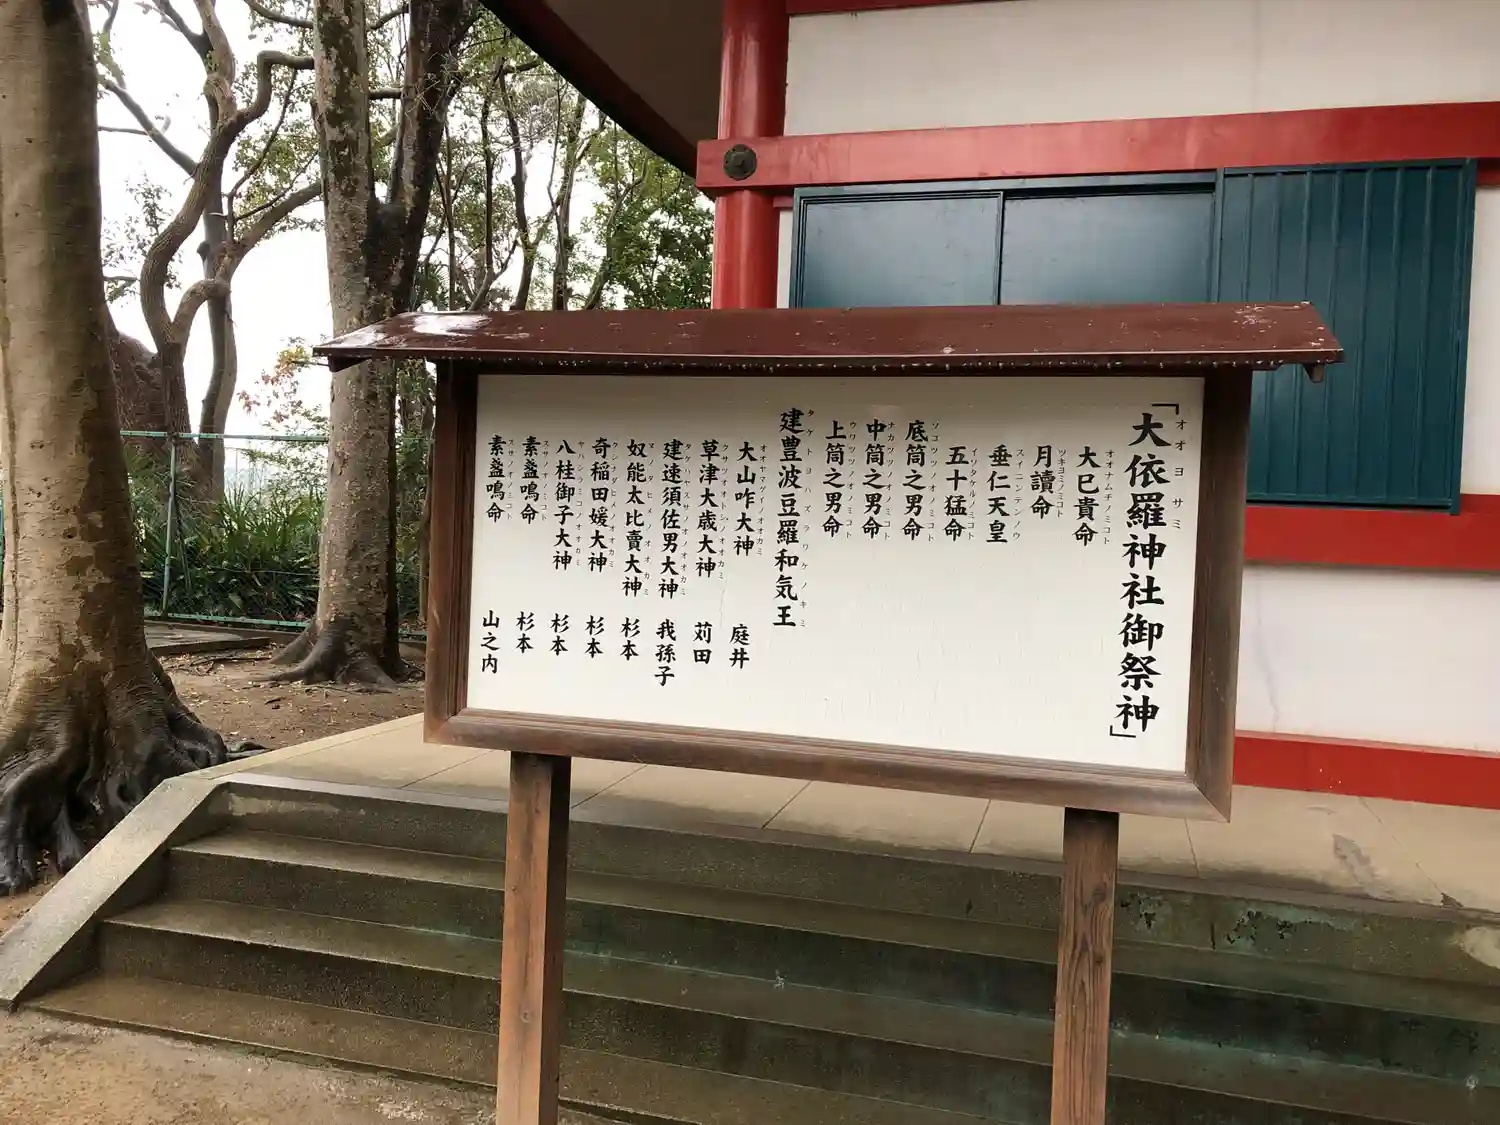 「大依羅神社御祭神」
オオヨサミ
大已貴命
オオナムチノミコト
月讀命
ツキヨミノミコト
垂仁天皇
スイニンテンノウ
五十猛命
イソタケルノミコト
底筒之男命
ソコツツノオノミコト
中筒之男命
ナカツツノオノミコト
上筒之男命
ウワツツノオノミコト
建豊波豆羅和気王
タケトヨハズラワケノキミ
大山咋大神 庭井
オオヤマグイノオオカミ
草津大歳大神 苅田
クサツオオトシノオオカミ
建速須佐男大神 我孫子
タケハヤスサノオノオオカミ
奴能太比賣大神 杉本
ヌノタヒメノオオカミ
奇稲田媛大神 杉本
クシナダヒメノオオカミ
八桂御子大神 杉本
ヤハシラミコノオオカミ
素盞鳴命 杉本
スサノオノミコト
素盞鳴命 山之内
スサノオノミコト